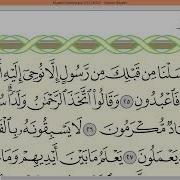 سَلْنَا مِن قَبْلِكَ مِن رَّسُولٍ إِلَّا نُوحِىٓ إِلَيْهِ أَ
فَٱعْبُدُونِ ٢٥ وَقَالُوا۟ ٱتَّخَذَ ٱلرَّحْمَٰنُ وَلَدًا ۗ
ادٌ مُّكْرَمُونَ ٢٦ لَا يَسْبِقُونَهُۥ بِٱلْقَ
يَعْمَلُونَ ٢٧ يَعْلَمُ مَا بَيْنَ أَيْدِيهِمْ وَمَا